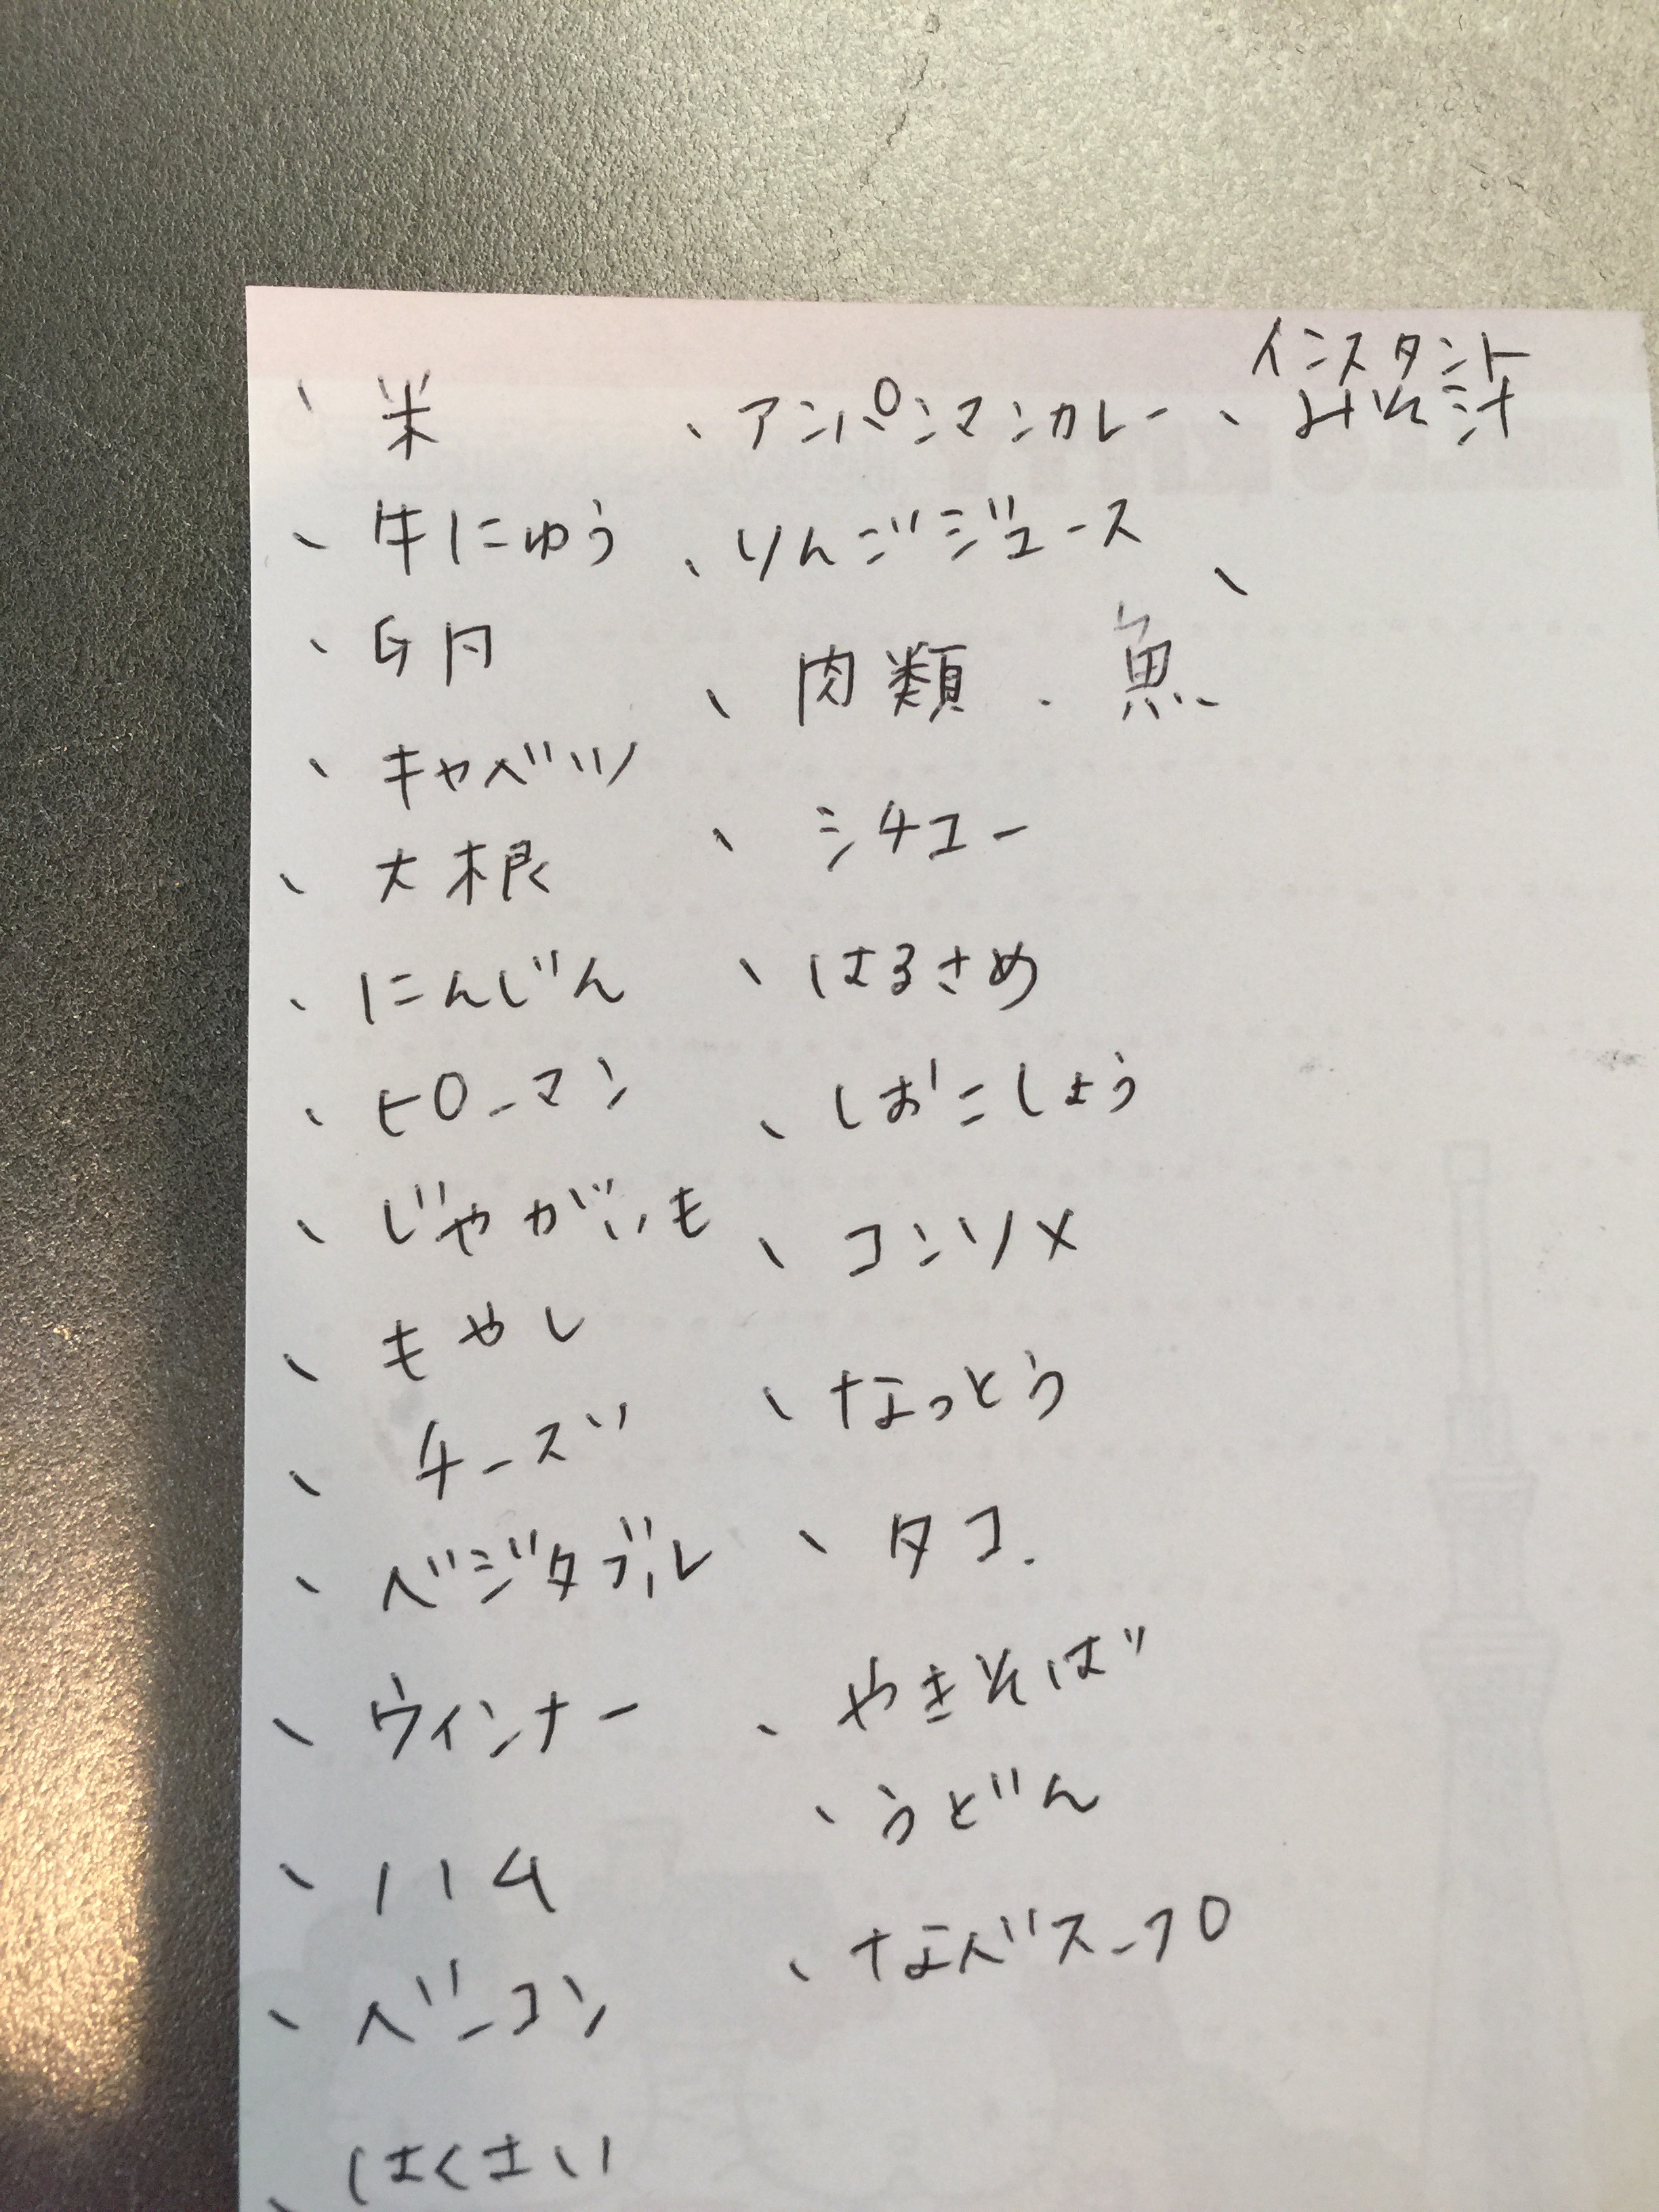 、米
、牛にゅう
、卵
、キャベツ
、大根
、にんじん
、ピーマン
、じゃがいも
、もやし
、チーズ
、ベジタブル
、ウィンナー
、ハム
、ベーコン
、はくさい
、アンパンマンカレー
、りんごジュース
、肉類、魚
、シチュー
、はるさめ
、しおこしょう
、コンソメ
、なっとう
、タコ.
、やきそば
、うどん
、なべスープ
インスタント
、みそ汁
、